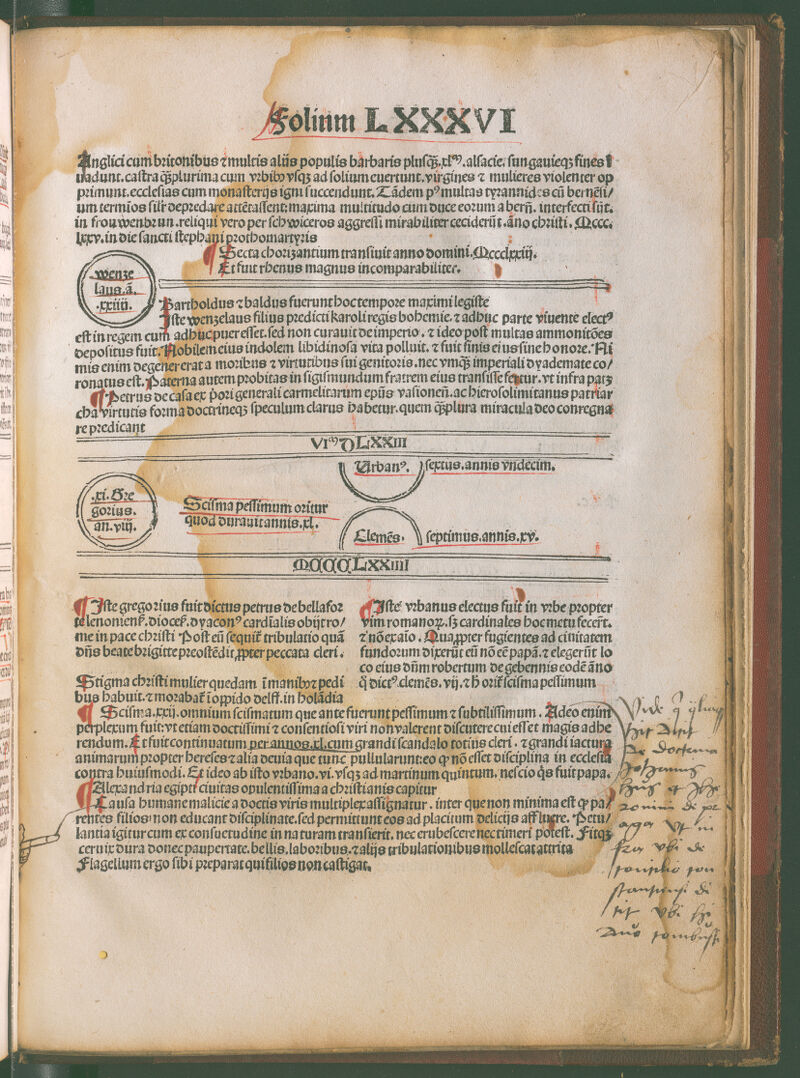 Folium LXXXVI
Anglici cum britonibus ⁊ multis aliis populis barbaris plusq̃ꝫ.xl.ᵐ.alsacie. sungauieqꝫ fines
uadunt. castra q̃ꝫplurima cum vrbibꝰ vsqꝫ ad solium euertunt. virgines ⁊ mulieres violenter op
primunt. ecclesias cum monasterijs igni succendunt. Tãdem pꝰ multas tyrannides cũ berneñ/
um termĩos siłr depredare attẽtassent: maxima multitudo cum duce eorum a berñ. interfecti sũt.
in frouwenbrun. reliqui vero per schwiceros aggressi mirabiliter ceciderũt. Ãno christi. Mccc.
lxxv. in die sancti stephani prothomartyris
¶ Secta chorizantium transiuit anno domini. Mccclxxiiij.
Et fuit rhenus magnus incomparabiliter.
wenze
laus. ã.
.xxiiij.
Bartholdus ⁊ baldus fuerunt hoc tempore maximi legiste
Iste wenzelaus filius predicti karoli regis bohemie. ⁊ adhuc parte viuente electꝰ
est in regem cum adhuc puer esset. sed non curauit de imperio. ⁊ ideo post multas ammonitões
depositus fuit. Nobilem eius indolem libidinosa vita polluit. ⁊ fuit finis eius sine honore. Ni
mis enim degenererat a moribus ⁊ virtutibus sui genitoris. nec vmqꝫ imperiali dyademate co/
ronatus est. Paterna autem probitas in sigismundum fratrem eius transisse fertur. vt infra patꝫ
¶ Petrus de casa ex p̃ori generali carmelitarum ep̃us vasioneñ. ac hierosolimitanus patriar
cha virtutis forma doctrineqꝫ speculum clarus habetur. quem q̃ꝫplura miracula deo conregna
re predicant
VIᵐDLXXIII
Vrbanꝰ. sextus. annis vndecim.
.xi. Gre
gorius.
an. viij.
Scisma pessimum oritur
quod durauit annis. xl.
Clemẽs. septimus. annis. xv.
MCCCLXXIIII
¶ Iste gregorius fuit dictus petrus de bellafor
te lenonieñ. dioceẽ. dyaconꝰ cardĩalis obijt ro/
me in pace christi Post eũ sequit̃ tribulatio quã
dñs beate brigitte preostẽdit ꝓpter peccata cleri.
Stigma christi mulier quedam ĩ manibꝰ ⁊ pedi
bus habuit. ⁊ morabat̃ ĩ oppido delff. in holãdia
¶ Iste vrbanus electus fuit in vrbe propter
vim romanoꝝ. sꝫ cardinales hoc metu fecer̃t.
⁊ nõ ex aĩo. Qua ꝓpter fugientes ad ciuitatem
fundorum dixerũt eũ nõ eẽ papã. ⁊ elegerũt lo
co eius dñm robertum de gebennis eodẽ ãno
q̃ dictꝰ. clemẽs. vij. ⁊ h̃ orit̃ scisma pessimum
¶ Scisma. xxij. omnium scismatum que ante fuerunt pessimum ⁊ subtilissimum. Adeo enim
perplexum fuit: vt etiam doctissimi ⁊ consentiosi viri non valerent discutere cui esset magis adhe
rendum. Et fuit continuatum per annos. xl. cum grandi scandalo totius cleri. ⁊ grandi iactura
animarum propter hereses ⁊ alia deuia que tunc pullularunt: eo ꝙ nõ esset disciplina in ecclesia
contra huiusmodi. Et ideo ab isto vrbano. vi. vsqꝫ ad martinum quintum. nescio q̃s fuit papa.
¶ Alexandria egipti ciuitas opulentissima a christianis capitur
¶ Causa humane malicie a doctis viris multiplex assignatur. inter que non minima est ꝙ pa/
rentes filios non educant disciplinate. sed permittunt eos ad placitum delicijs affluere. Petu/
lantia igitur cum ex consuetudine in naturam transierit. nec erubescere nec timeri potest. Fitqꝫ
ceruix dura donec paupertate. bellis. laboribus. ⁊ alijs tribulationibus mollescat attrita
Flagellum ergo sibi preparat qui filios non castigat.
Vide
De doctrina
Johannis
Hus et
ronimi de pr
aga vt in
fra vbi de
consilio con
stantiensi di
cit vbi
combusti